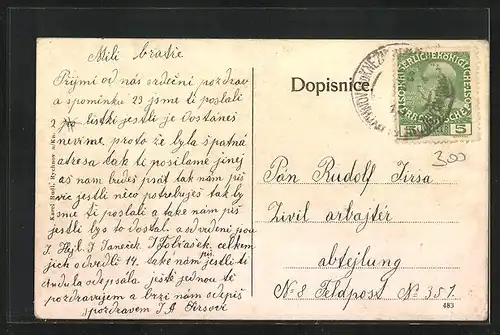 Milí bratře
Prijmi od nás srdečni pozdrav
a spominku 23 jsme ti poslali
2 listki jestli je dostaneš
nevíme proto že byla špatná
adresa tak ti posilame jinej
as nam budeš psát tak nám piš
vic jestli něco potřebuješ tak by
sme ti poslali a take nám piš
jestli tys to dostal a odvedeni sou
J. Hejl. J Janeček celkem
jich odvedli 14. také nám piš jestli ti
odepsala ještě jednou tě
pozdravujem a brzi nám odepiš
s pozdravem J A Jirsovi
Karel Rathl, Rychnov n/Kn.
Dopisnice.
5
300
Pan Rudolf Jirsa
Zivil arbajtér
abtejlung
No 8 Feldpost No 351
483